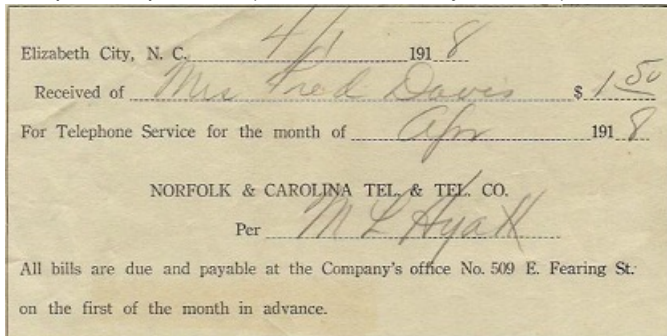 Elizabeth City, N. C. 4/1 1918
Received of Mrs Fred Davis $ 1 50
For Telephone Service for the month of Apr 1918
NORFOLK & CAROLINA TEL. & TEL. CO.
Per M L Hyatt
All bills are due and payable at the Company's office No. 509 E. Fearing St.
on the first of the month in advance.